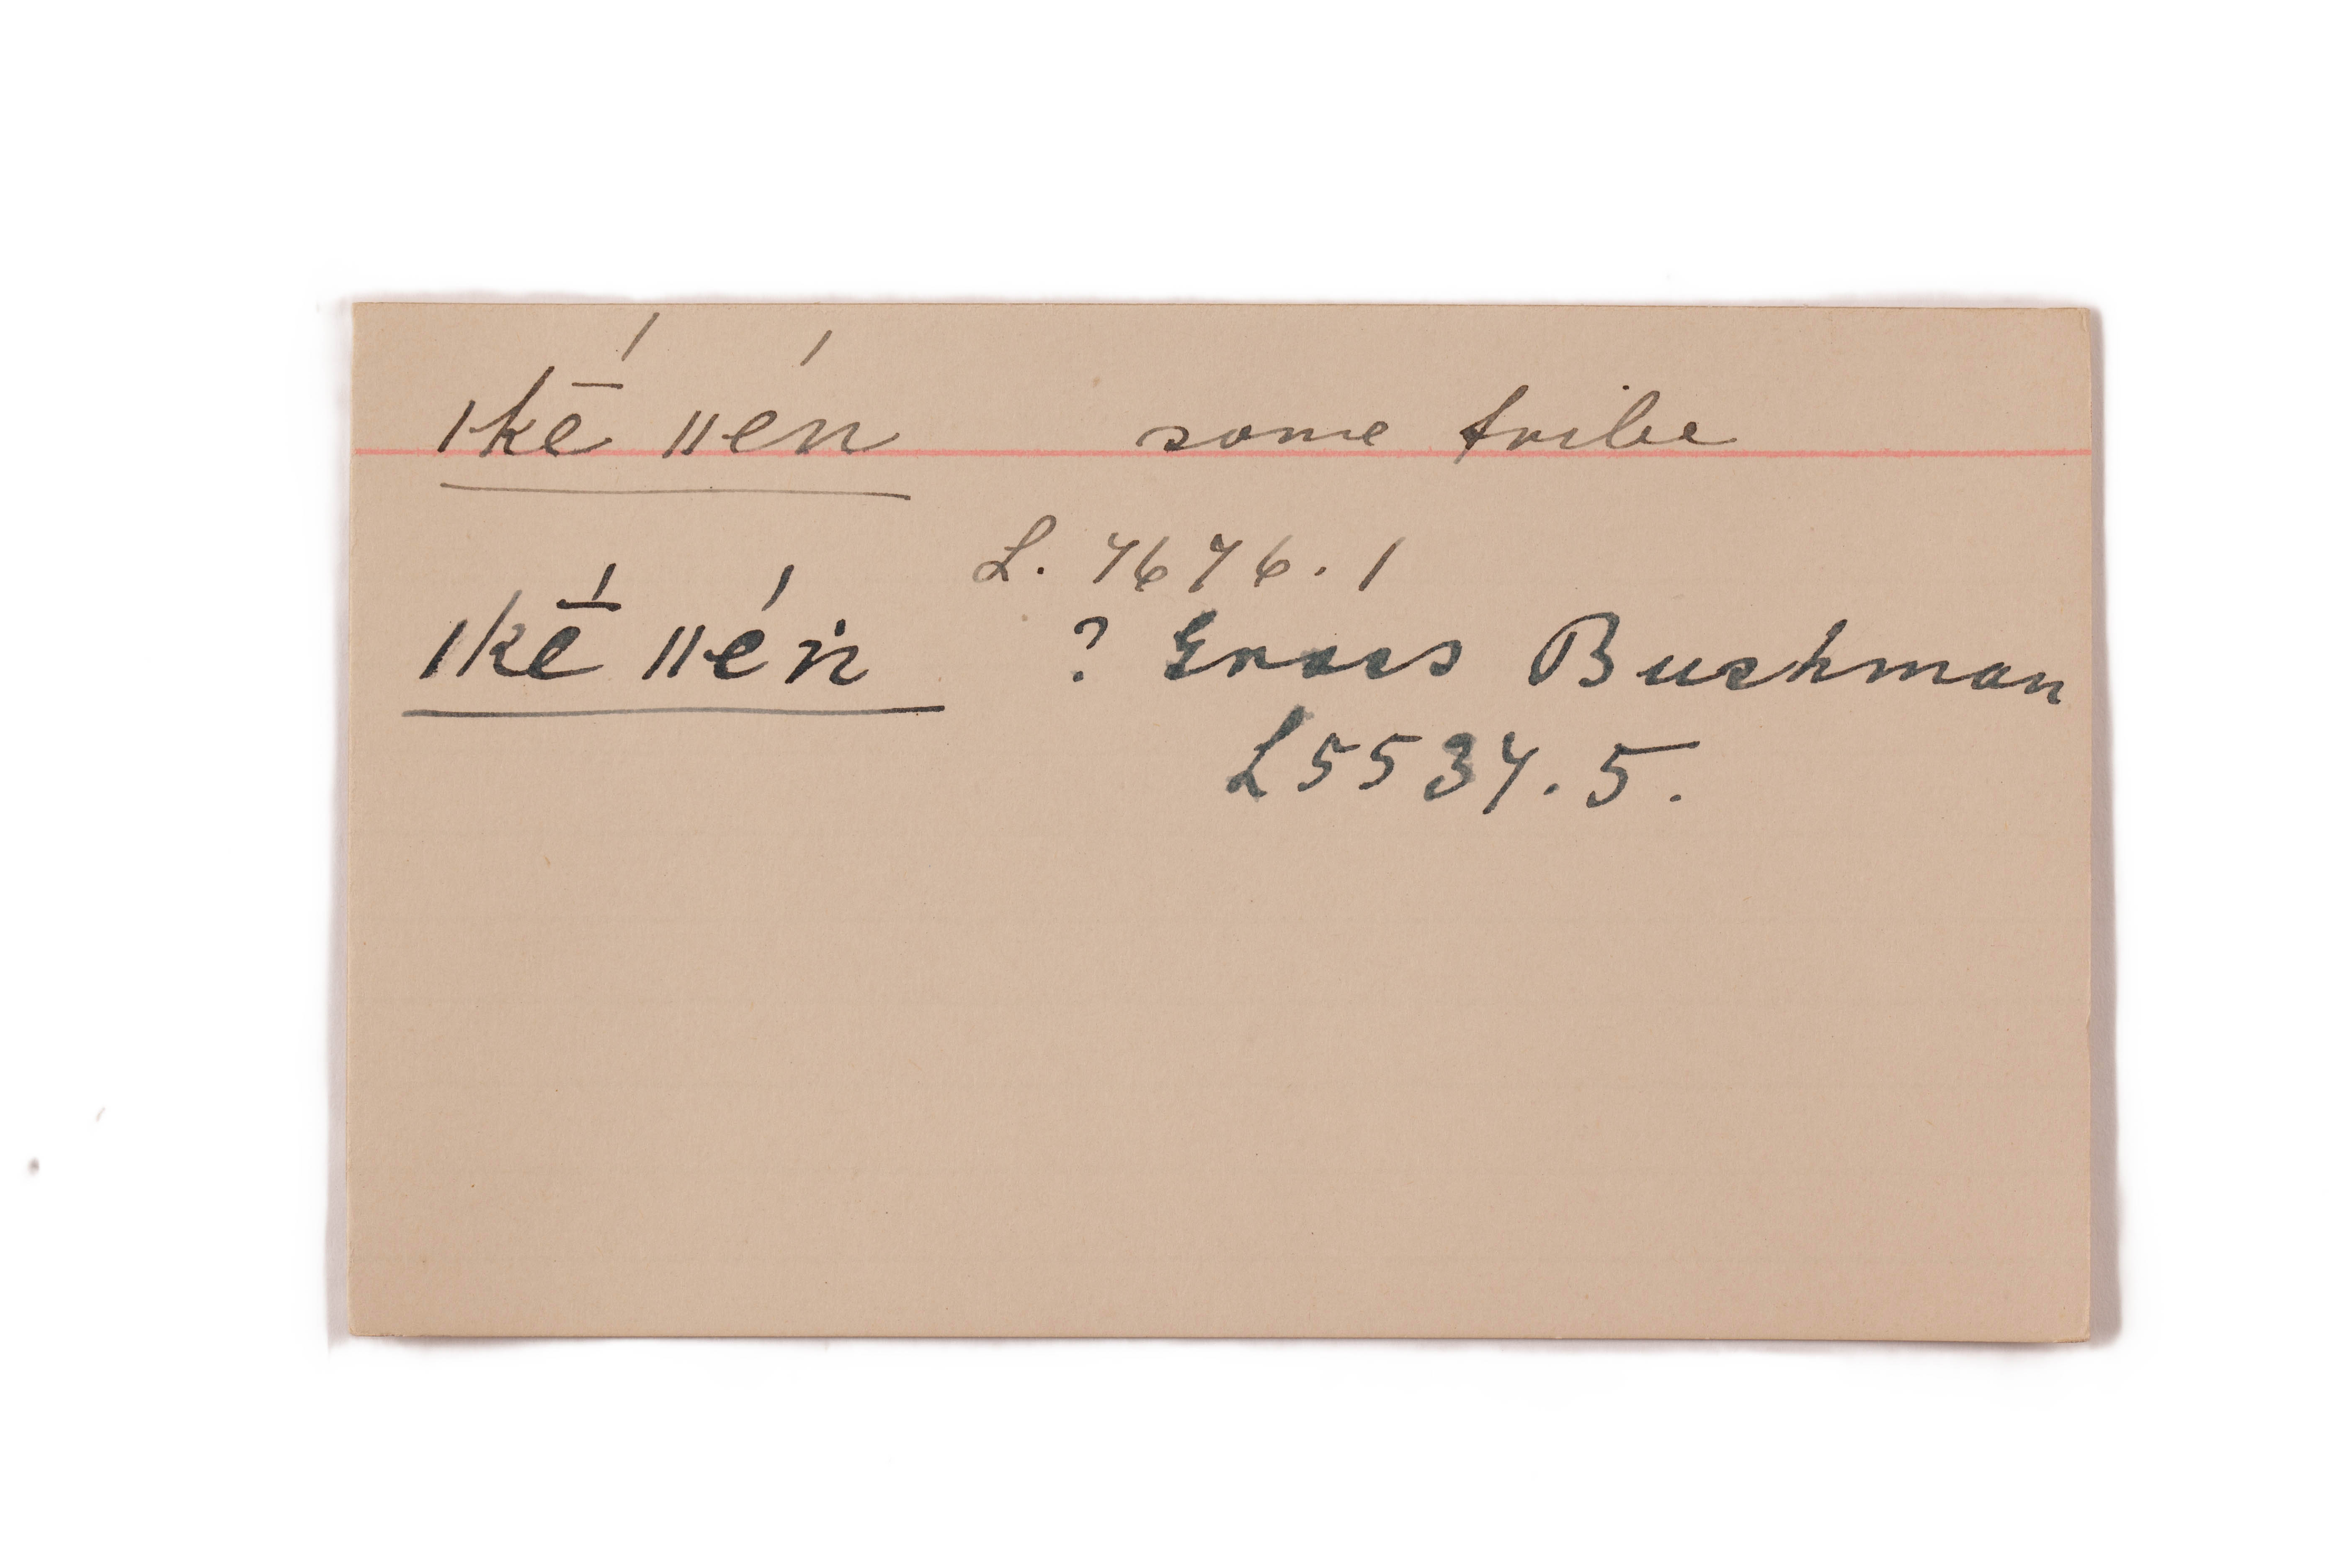 ǀkḗ ǁén some tribe
L. 7676.1
ǀkḗ ǁéṅ ? Grass Bushman
L5537.5.